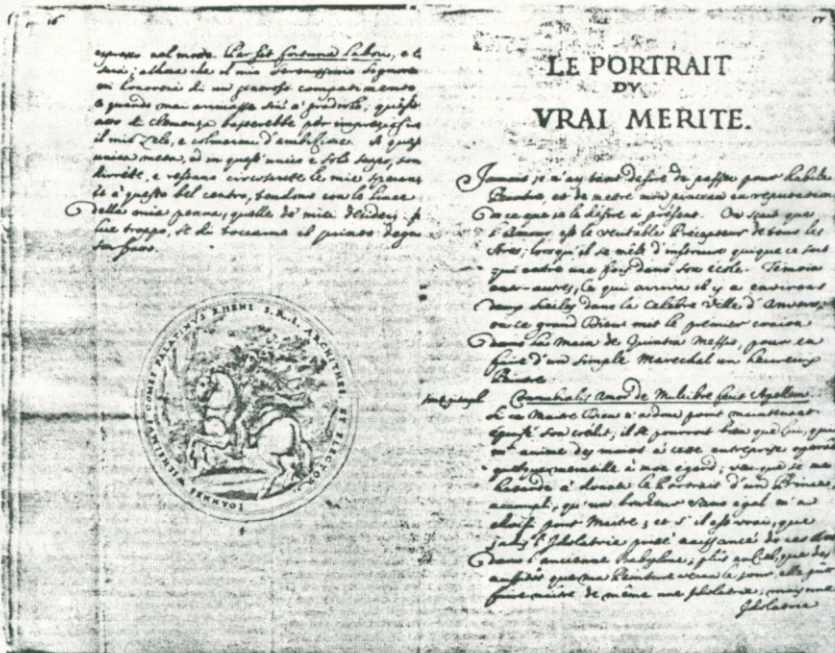 16
espresso nel modo. Per fas fortuna labore, e li
mi honorerà di un
e quando mai arrivasse sin' a gradirle, quest'
atto di clemenza basterebbe per
il mio zelo, e colmarmi d'ambizione. A quest'
unica meta, ed in quest' unico e solo segno, son
dirette, e restano circonscritte le mie speran
a questo bel centro, tendono con le linee
della mia penna, quelle de' miei desideri
troppo, se di toccarne il primo degn
IOANNES WILHELMVS COMES PALATINVS RHENI S. R. I. ARCHITHES. ET ELECTOR
17
LE PORTRAIT
DV
VRAI MERITE.
Jamais je n'ay tant desiré de passer pour habile
Peintre, et de mettre mon pinceau en reputation
que je le désire à présent. On sçait que
l'Amour est le veritable Précepteur de tous les
Arts; lorsqu'il se mêle d'instruire quique ce soit
qui entre une fois dans son école. Témoin
entr-autres, ce qui arriva il y a environ
deux siecles dans la celebre ville d'Anvers,
ou ce grand Dieu mit le premier craion
dans la Main de Quintin Messis, pour en
faire d'un simple Marechal un heureux
Peintre
Connubialis Amor de Mulcibre fecit Apellem
Si ce Maitre Dieu n'a donc point maintenant
épuisé son credit, il se pourroit bien que lui, qui
m'anime des mieux à cette entreprise
quelque merveille à mon égard; veu que je me
hazarde à donner le Portrait d'un Prince
accompli, qu'un bonheur sans égal m'a
choisi pour Maitre; et s'il est vrai, que
jadis l'Idolatrie prit naissance de ces
dans l'ancienne Babylone, plût au Ciel, que des
aussitôt que ma Peinture verra le jour, elle pût
faire naitre de même une Idolatrie, mais une
Idolatrie